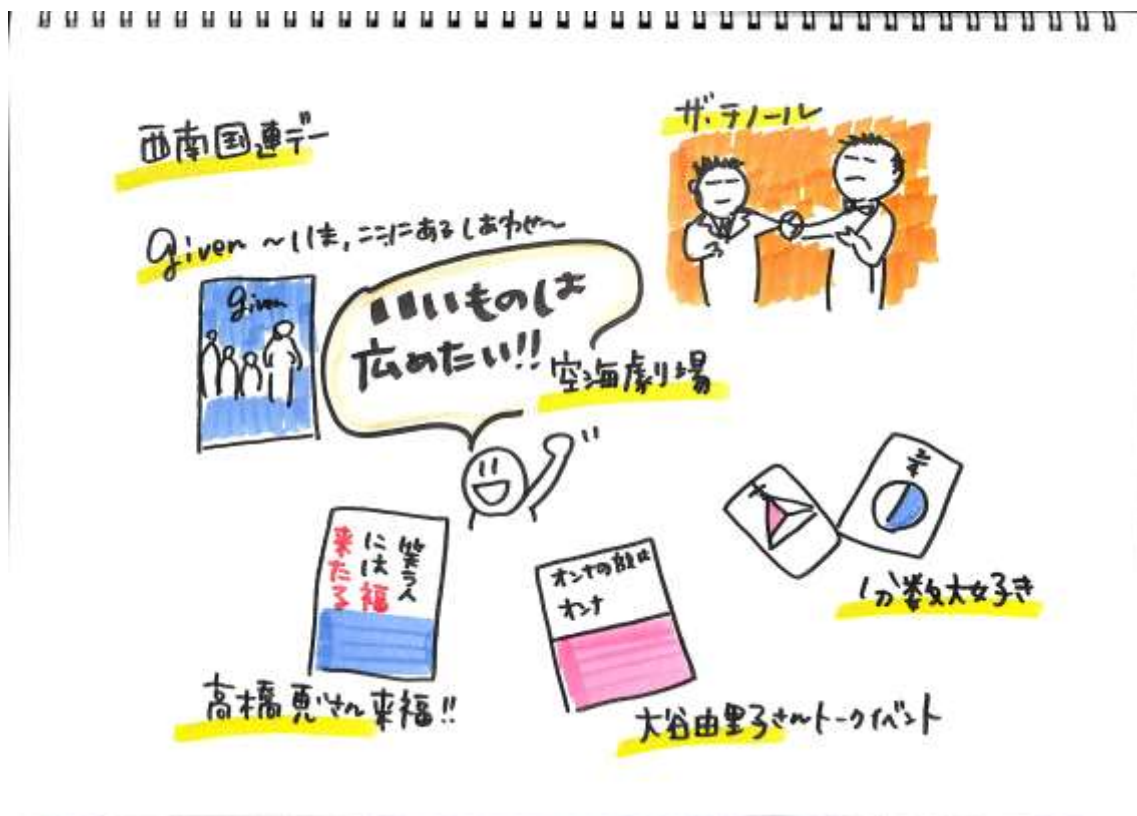 西南国連デー
ザ・テノール
given 〜いま,ここにあるしあわせ〜
given
いいものは
広めたい!!
空海劇場
笑う人
には福
来たる
オンナの敵は
オンナ
2/4
分数大好き
高橋恵さん来福!!
大谷由里子さんトークイベント